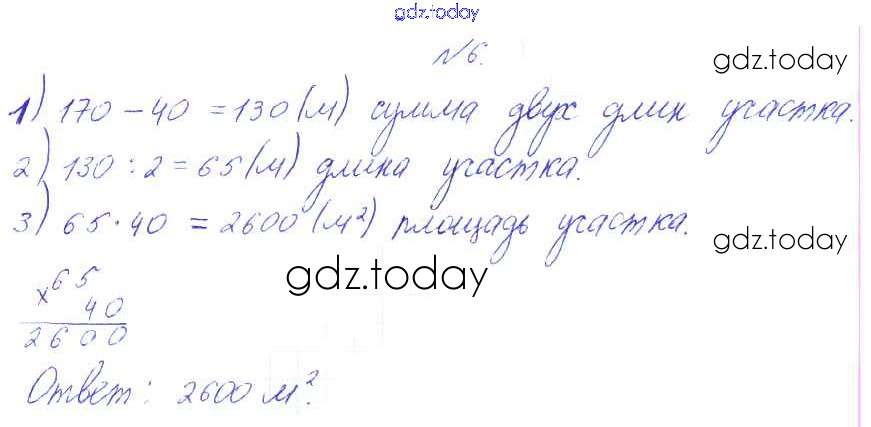 gdz.today
№6.
gdz.today
1) 170 - 40 = 130 (м) сумма двух длин участка.
2) 130 : 2 = 65 (м) длина участка.
3) 65 · 40 = 2600 (м²) площадь участка.
gdz.today
gdz.today
× 65
40
2600
Ответ: 2600 м².